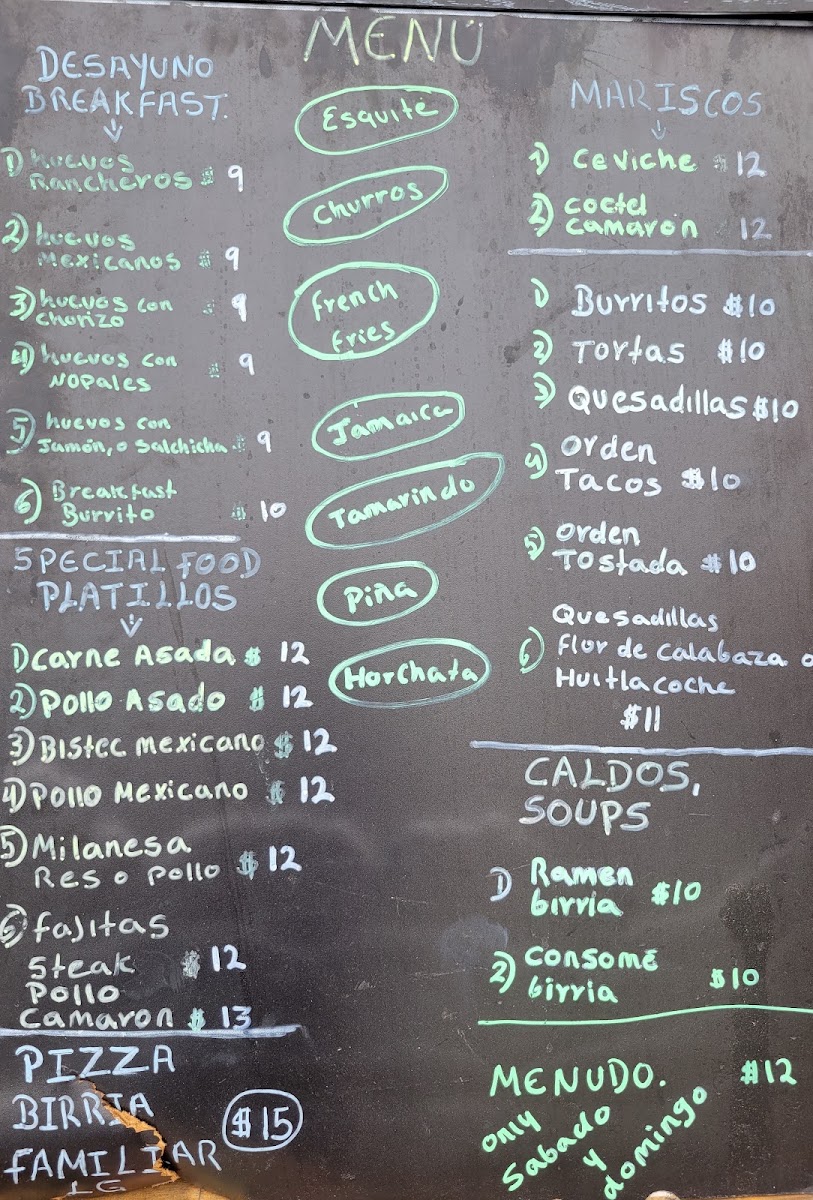 MENÚ
DESAYUNO
BREAKFAST.
1) huevos
Rancheros $ 9
2) huevos
Mexicanos $ 9
3) huevos con $ 9
chorizo
4) huevos con $ 9
NOPales
5) huevos con
Jamón, o Salchicha $ 9
6) Breakfast
Burrito $ 10
SPECIAL FOOD
PLATILLOS
1) Carne Asada $ 12
2) Pollo Asado $ 12
3) Bistec mexicano $ 12
4) Pollo Mexicano $ 12
5) Milanesa
Res o Pollo $ 12
6) fajitas
Steak $ 12
Pollo
Camaron $ 13
PIZZA
BIRRIA
FAMILIAR
LG
$15
Esquite
Churros
French
fries
Jamaica
Tamarindo
Piña
Horchata
MARISCOS
1) Ceviche $ 12
2) Coctel
Camaron 12
1) Burritos $10
2) Tortas $10
3) Quesadillas $10
4) Orden
Tacos $10
5) Orden
Tostada $10
Quesadillas
6) Flor de calabaza o
Huitlacoche
$11
CALDOS,
SOUPS
1) Ramen
birria $10
2) Consomé
birria $10
MENUDO. $12
only
Sabado
y
domingo